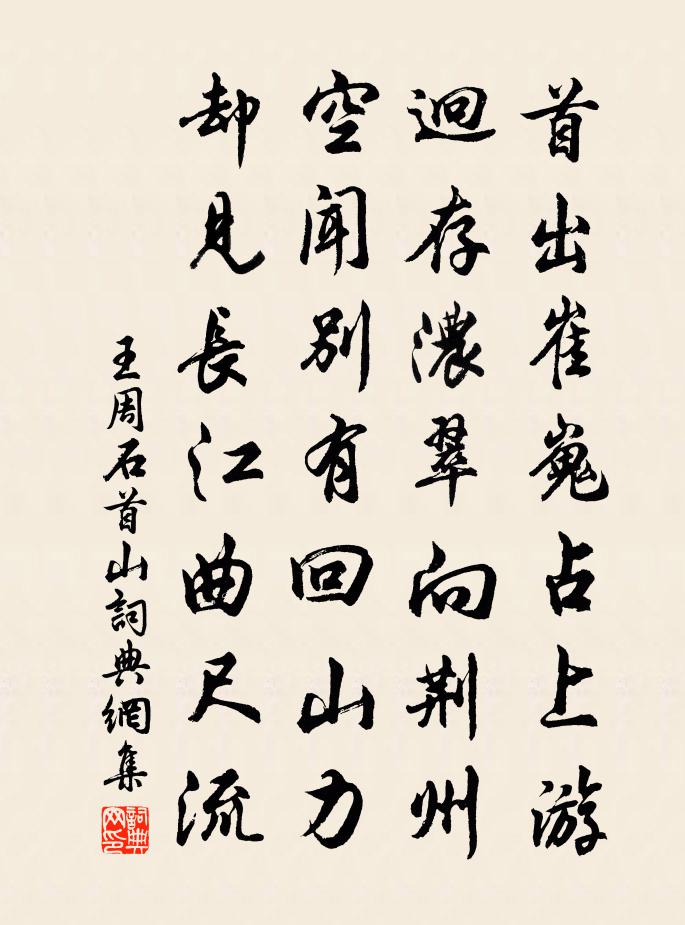 首出崔嵬占上游
迥存濃翠向荆州
空聞別有回山力
却見長江曲尺流
王周石首山詞典網集
詞典网印